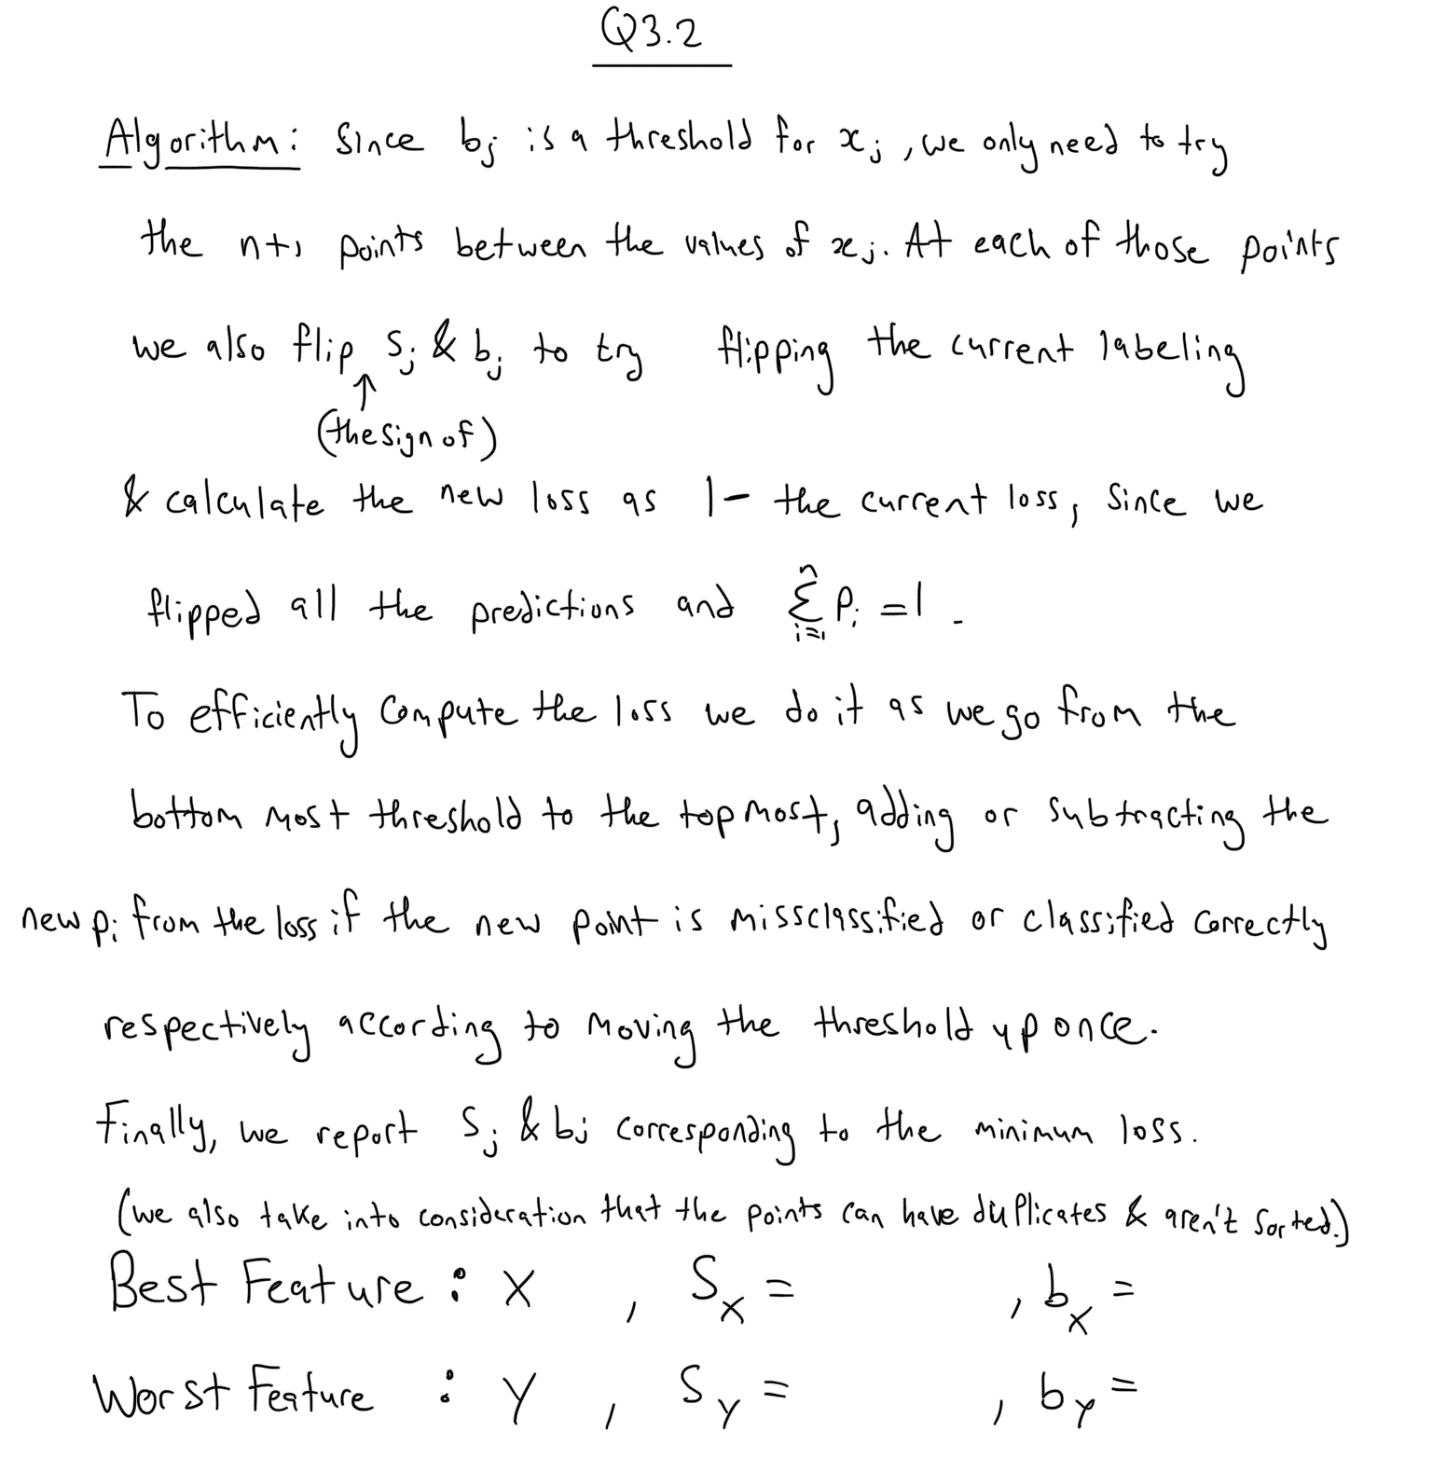 Q3.2
Algorithm: Since bj is a threshold for xj, we only need to try
the n+1 points between the values of xj. At each of those points
we also flip Sj & bj to try flipping the current labeling
↑
(the sign of)
& calculate the new loss as 1- the current loss, since we
flipped all the predictions and \sum_{i=1}^{n} P_i = 1.
To efficiently compute the loss we do it as we go from the
bottom most threshold to the top most, adding or subtracting the
new Pi from the loss if the new point is missclassified or classified correctly
respectively according to moving the threshold up once.
Finally, we report Sj & bj corresponding to the minimum loss.
(we also take into consideration that the points can have duplicates & aren't sorted.)
Best Feature : X , S_X = , b_X =
Worst Feature : Y , S_Y = , b_Y =